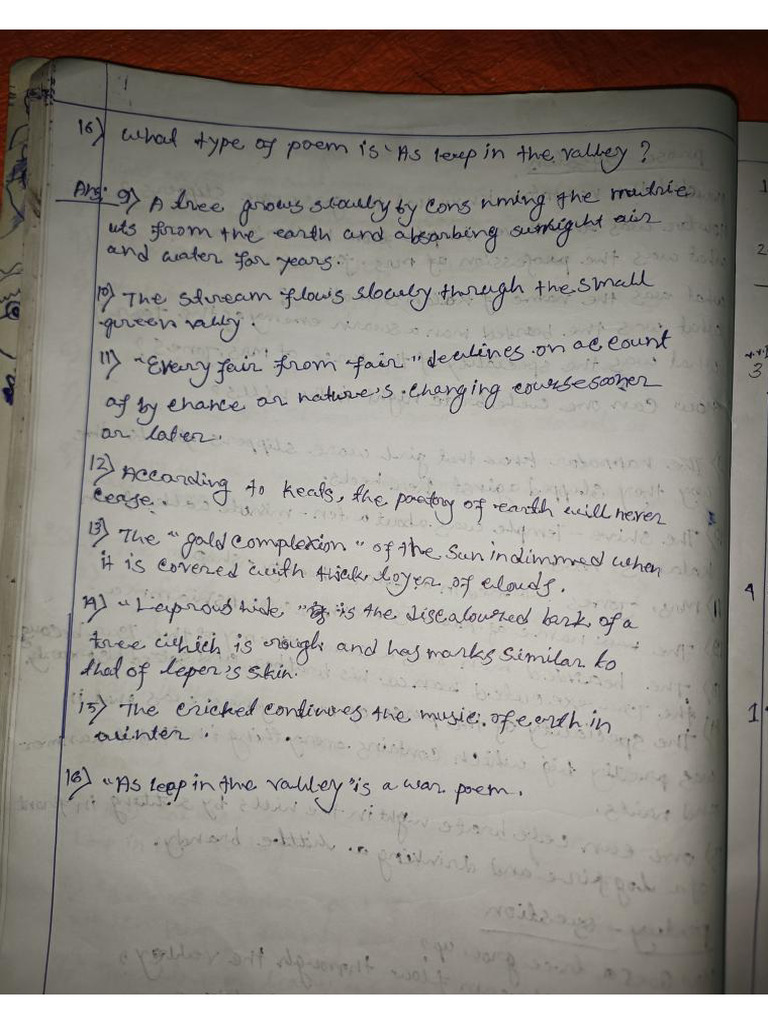 16) What type of poem is "As leep in the valley?
Ans: 9) A tree grows slowly by consuming the nutrie
nts from the earth and absorbing sunlight air
and water for years.
10) The stream flows slowly through the small
green vally.
11) "Every fair from fair" declines on account
of by chance or nature's changing course sooner
or later.
12) According to Keats, the poetry of earth will never
cease.
13) The "gold complexion" of the sun indimmed when
it is covered with thick loyer of clouds.
14) "Leprous hide" is the discoloured bark of a
tree which is rough and has marks similar to
that of leper's skin.
15) The cricked continues the music of earth in
winter.
16) "As leep in the valley" is a war poem.
1
2
3
4
1